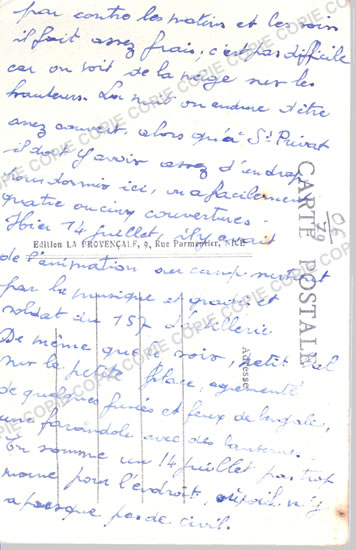 par contre les matins et les soirs
il fait assez frais, c'est pas difficile
car on voit de la neige sur les
hauteurs. La nuit on endure d'être
assez couvert. alors qu'à St Privat
il doit y avoir assez d'un drap
pour dormir ici, on a facilement
quatre ou cinq couvertures.
Hier 14 juillet, il y avait
Edition LA PROVENÇALE, 9, Rue Parmentier, NICE
de l'animation au camp surtout
par la musique et
soldat du 157 d'artillerie
De même que le soir, petit bal
sur la petite place, agrémenté
de quelques fusées et feux de bengale,
une farandole avec des lanternes.
En somme un 14 juillet pas trop
morne pour l'endroit, où il n'y
a presque pas de civil.
CARTE POSTALE
Adresse
COPIE COPIE COPIE COPIE COPIE